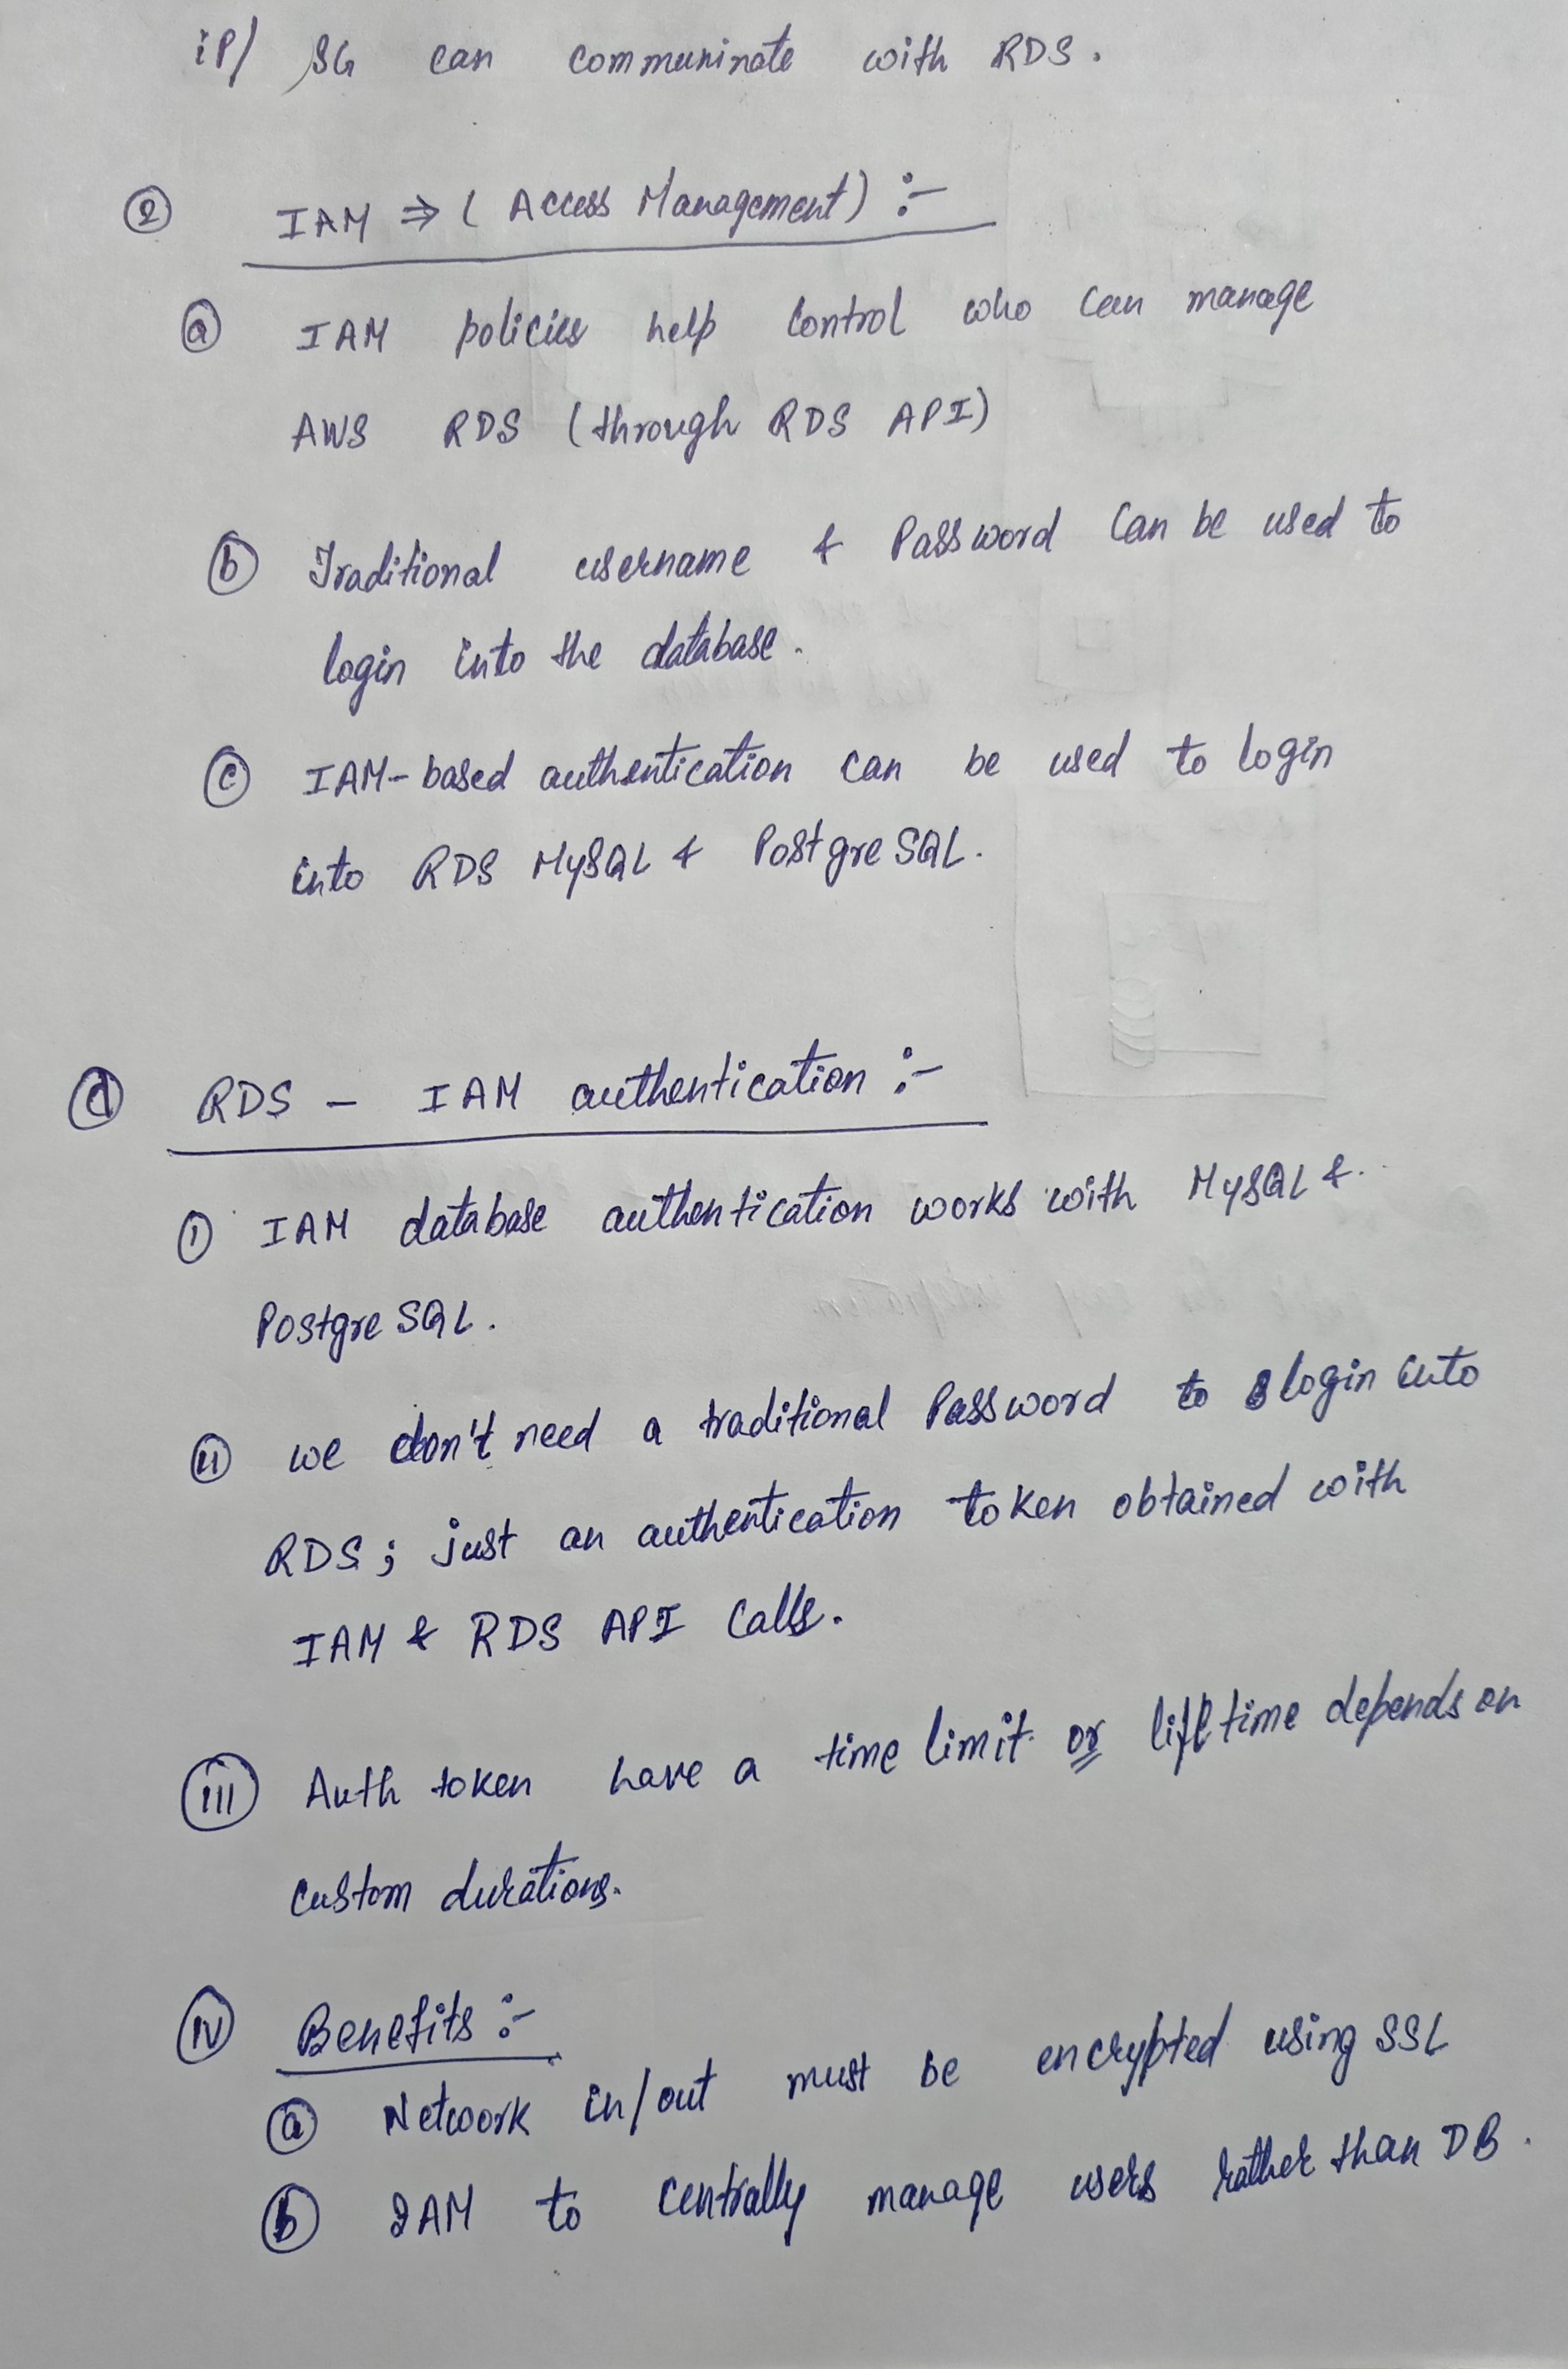 iP/ SG can communinate with RDS.
② IAM ⇒ ( Access Management) :-
ⓐ IAM policies help Control who can manage
AWS RDS (through RDS API)
ⓑ Traditional username & Password Can be used to
login into the database.
ⓒ IAM-based authentication can be used to login
into RDS MySQL & PostgreSQL.
ⓓ RDS - IAM authentication :-
ⓘ IAM database authentication works with MySQL &
PostgreSQL.
ⓘⓘ we don't need a traditional Password to login into
RDS; just an authentication token obtained with
IAM & RDS API Calls.
ⓘⓘⓘ Auth token have a time limit or lifetime depends on
custom durations.
ⓘⓥ Benefits :-
ⓐ Network in/out must be encrypted using SSL
ⓑ IAM to centrally manage users rather than DB.